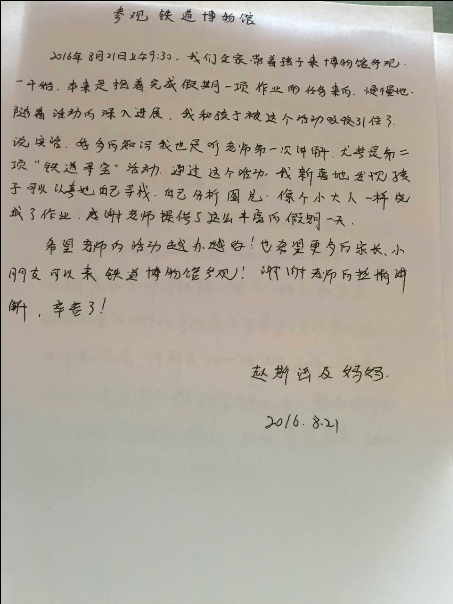 参观铁道博物馆
2016年8月21日上午9:30，我们全家带着孩子来博物馆参观.
一开始，本来是抱着完成假期一项作业的任务来的，慢慢地
随着活动的深入进展，我和孩子被这个活动吸引住了.
说实话，好多的知识我也是听老师第一次讲解，尤其是第二
项“铁道寻宝”活动，通过这个活动，我新喜地发现孩
子可以认真地自己寻找，自己分析图片，像个小大人一样完
成了作业，感谢老师提供了这么丰富的假期一天.
希望老师的活动越办越好！也希望更多的家长、小
朋友可以来铁道博物馆参观！谢谢老师的热情讲
解，辛苦了！
赵斯 及妈妈.
2016.8.21